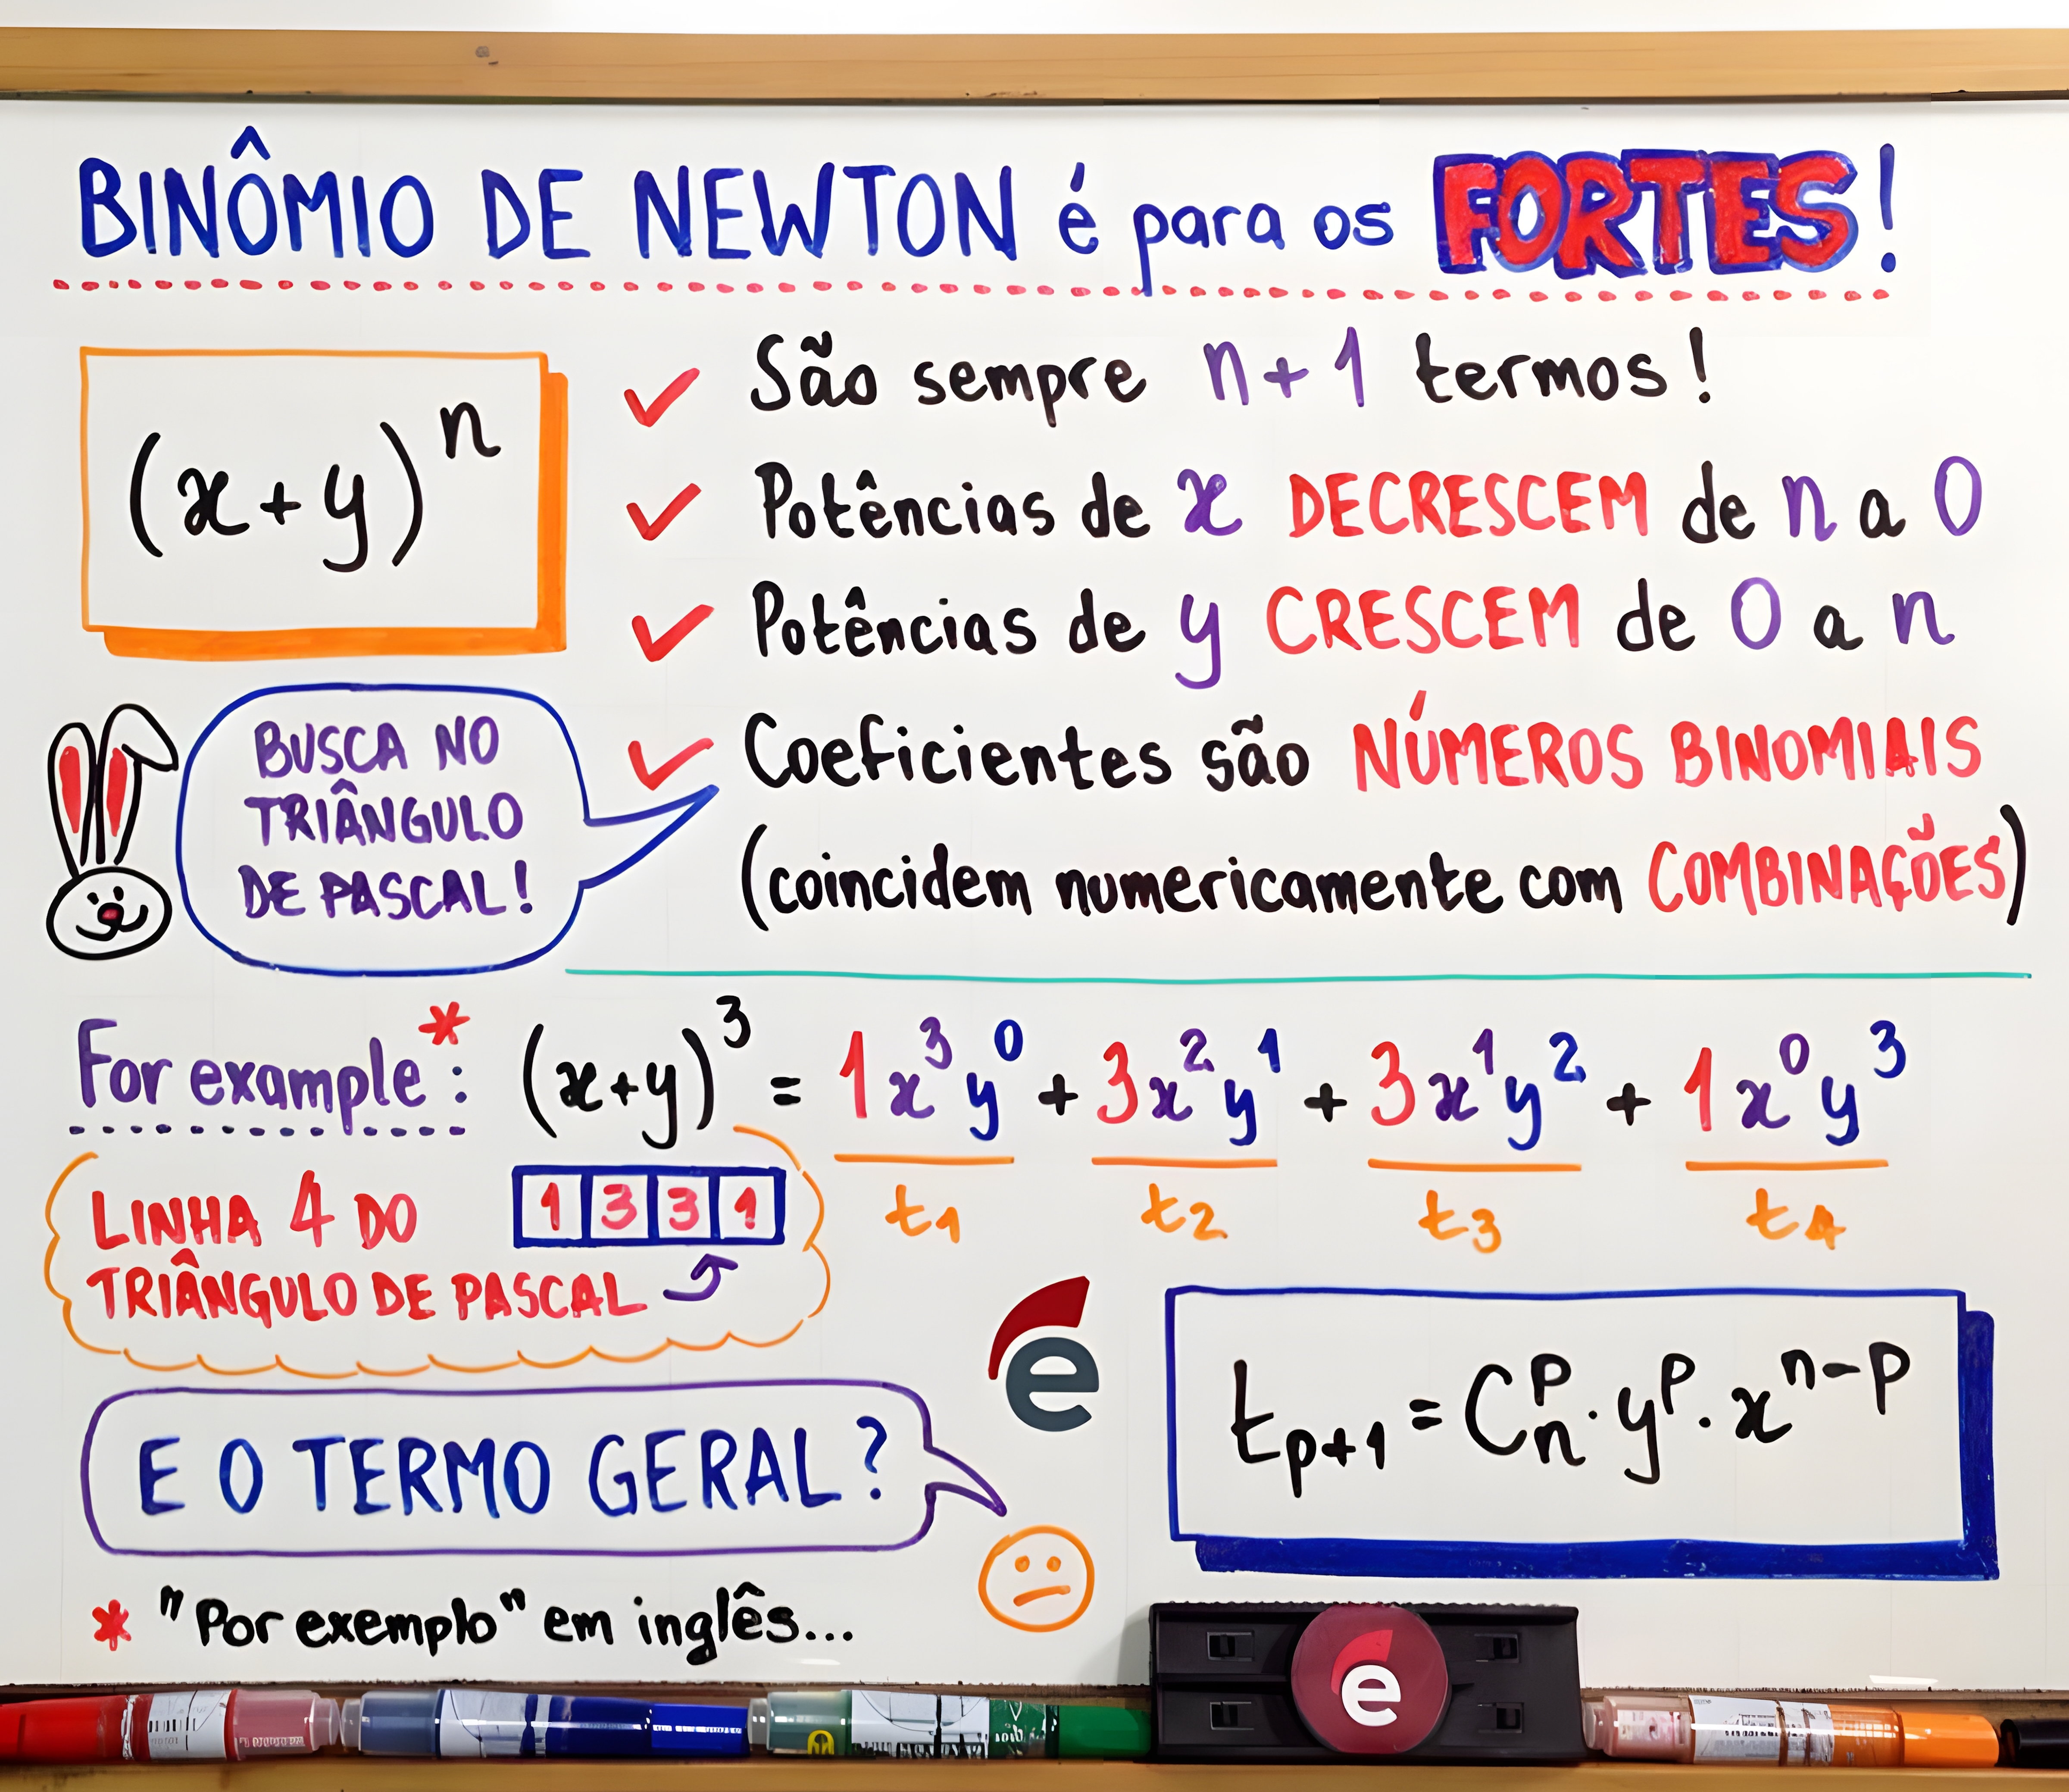 BINÔMIO DE NEWTON é para os FORTES!
(x+y)^n
✓ São sempre n+1 termos!
✓ Potências de x DECRESCEM de n a 0
✓ Potências de y CRESCEM de 0 a n
✓ Coeficientes são NÚMEROS BINOMIAIS
(coincidem numericamente com COMBINAÇÕES)
BUSCA NO
TRIÂNGULO
DE PASCAL!
For example*: (x+y)^3 = 1x^3y^0 + 3x^2y^1 + 3x^1y^2 + 1x^0y^3
t_1 t_2 t_3 t_4
LINHA 4 DO 1 3 3 1
TRIÂNGULO DE PASCAL
e
E O TERMO GERAL?
t_{p+1} = C_n^p · y^p · x^{n-p}
* "Por exemplo" em inglês...
e